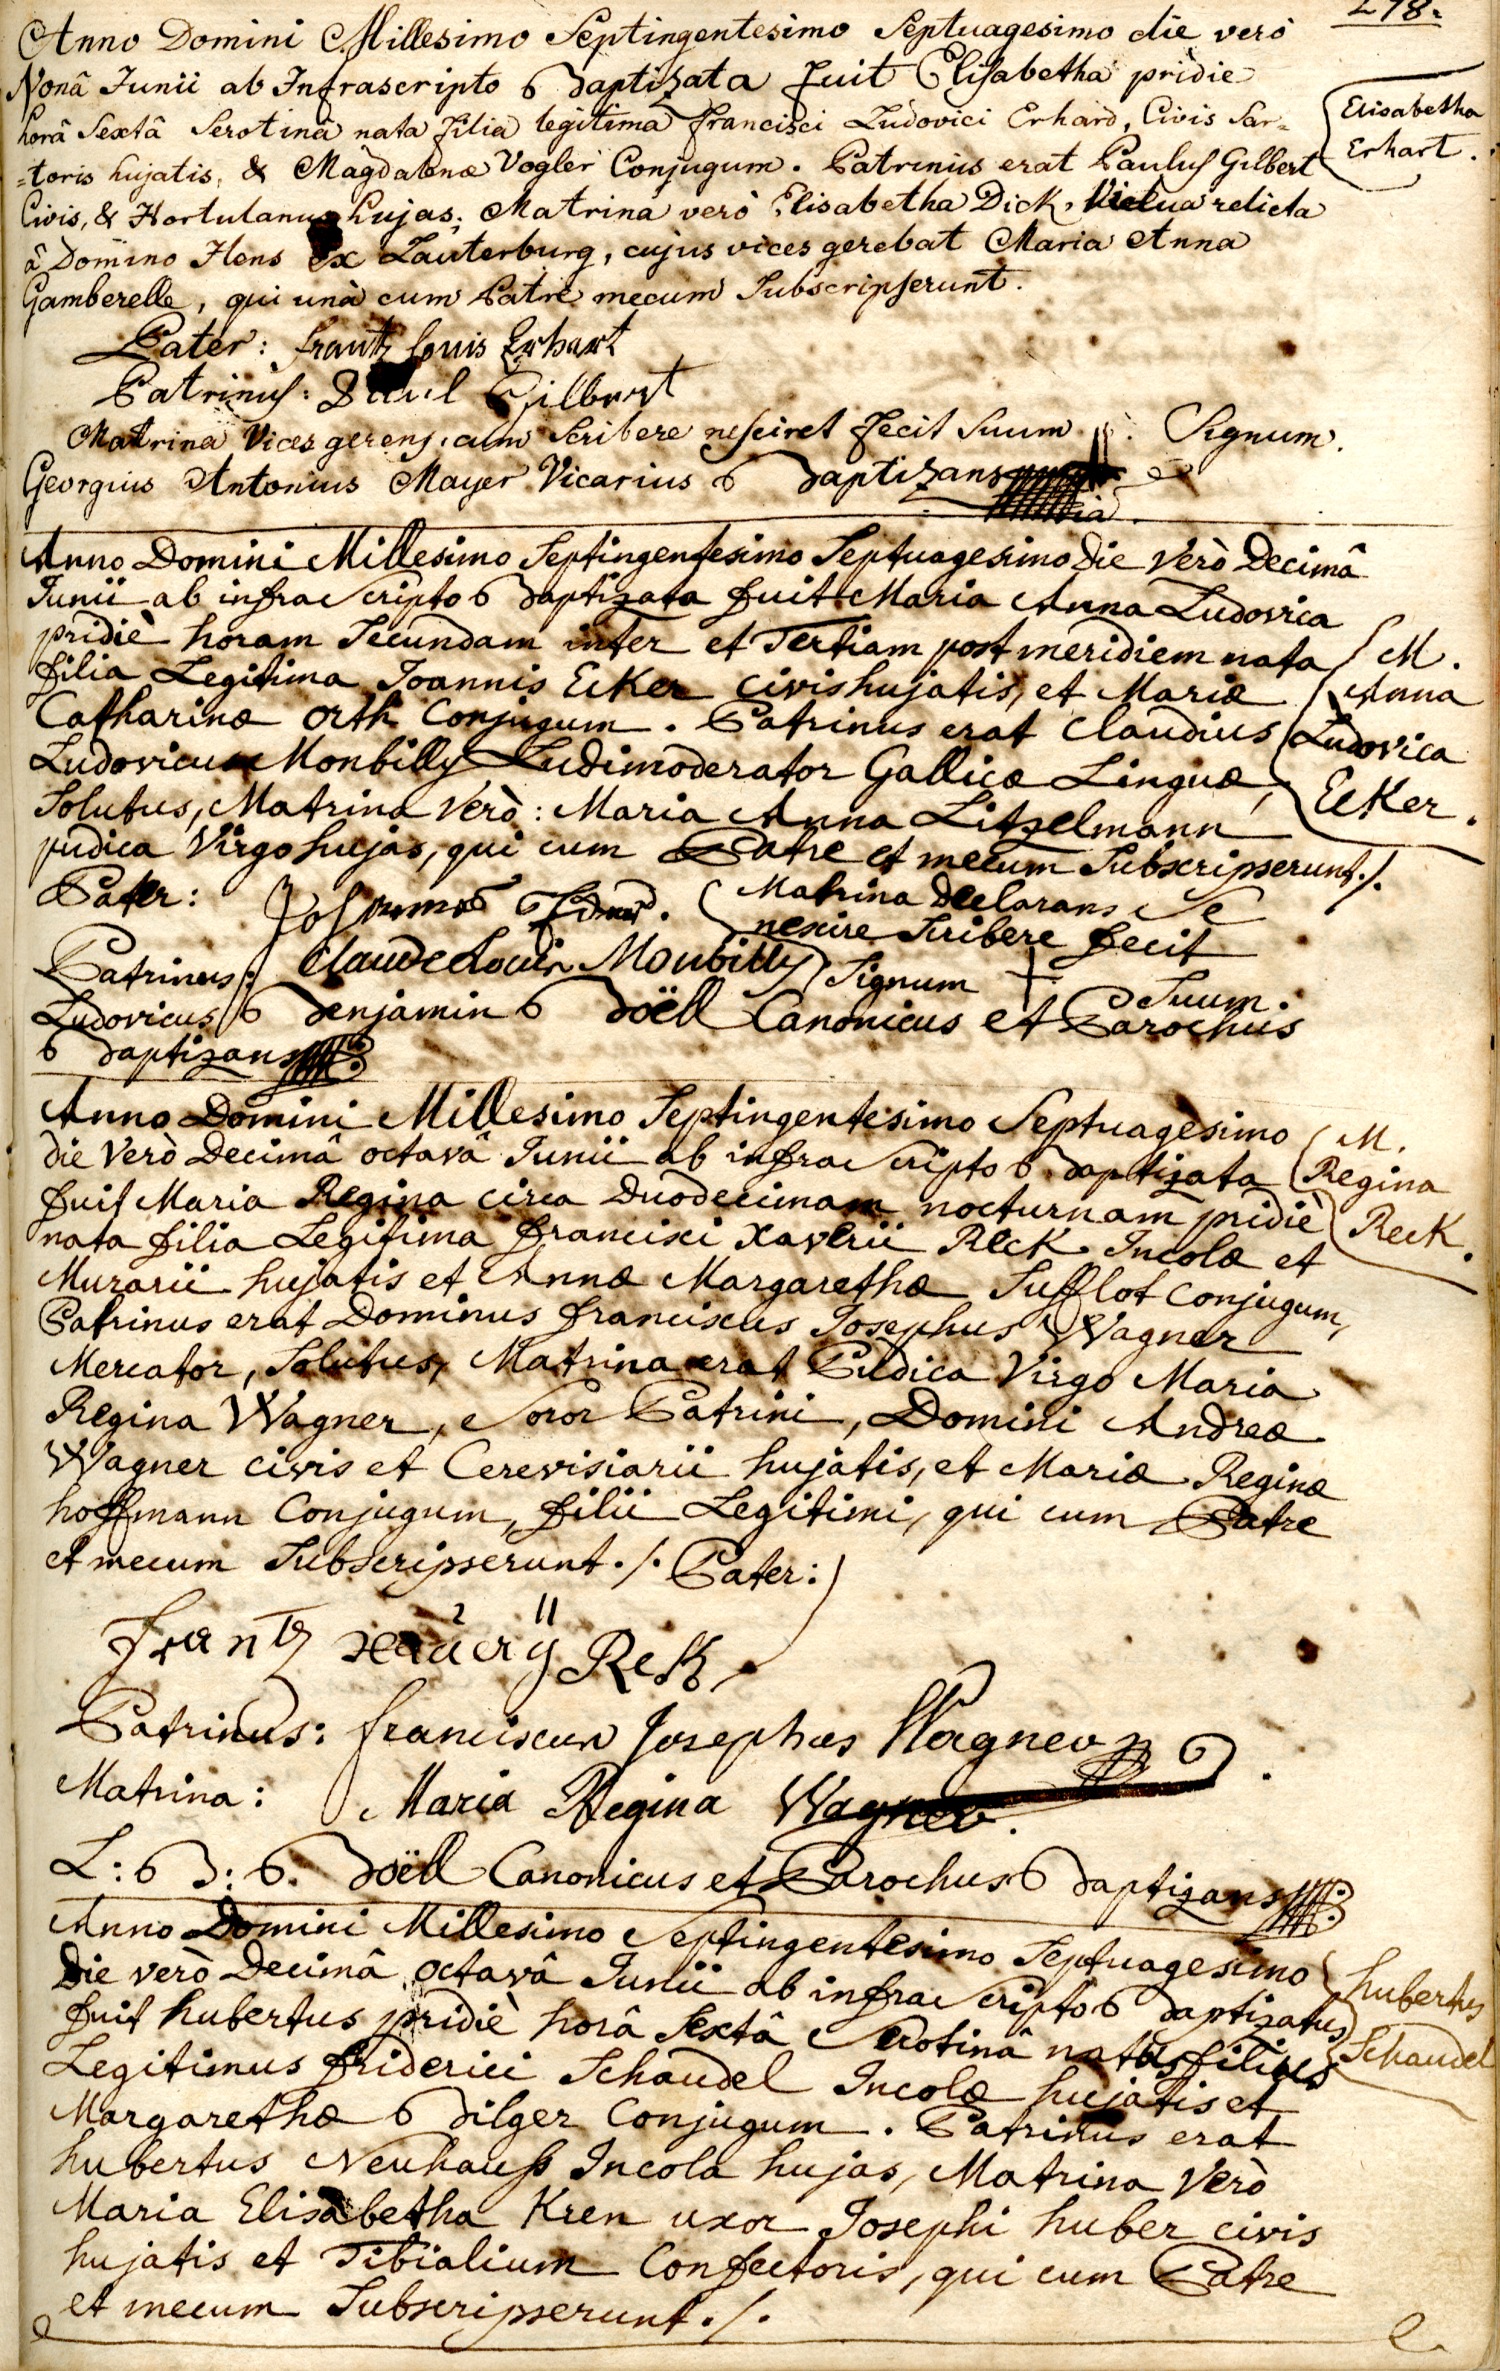 278.
Anno Domini Millesimo Septingentesimo Septuagesimo die verò
Nonâ Junii ab Infrascripto Baptizata fuit Elisabetha pridie
horâ Sextâ Serotinâ nata filia legitima Francisci Ludovici Erhard, Civis Sar=
=toris hujatis, & Magdalenæ Vogler Conjugum. Patrinus erat Paulus Gilbert
Civis, & Hortulanus hujas; Matrina verò Elisabetha Dick, Vidua relicta
â Domino Hens ex Lauterburg, cujus vices gerebat Maria Anna
Gamberelle, qui unà cum Patre mecum Subscripserunt.
Elisabetha
Erhart.
Pater: frantz louis Erhart
Patrinus: Paul Gilbert
Matrina Vices gerens, cum Scribere nesciret fecit Suum Signum.
Georgius Antonius Mayer Vicarius Baptizans
Anno Domini Millesimo Septingentesimo Septuagesimo Die Verò Decimâ
Junii ab infra Scripto Baptizata fuit Maria Anna Ludovica
pridiè horam Secundam inter et Tertiam post meridiem nata
filia Legitima Joannis Ecker civis hujatis, et Mariæ
Catharinæ Orth Conjugum. Patrinus erat Claudius
Ludovicus Monbilly Ludimoderator Gallicæ Linguæ,
Solutus, Matrina Verò: Maria Anna Litzelmann
pudica Virgo hujas, qui cum Patre et mecum Subscripserunt./.
M.
Anna
Ludovica
Ecker.
Pater: Johannes
Matrina Declarans Se
nescire Scribere fecit
Patrinus: Claude Louis Monbilly Signum + Suum.
Ludovicus Benjamin Boëll Canonicus et Parochus
Baptizans
Anno Domini Millesimo Septingentesimo Septuagesimo
die Verò Decimâ octavâ Junii ab infra Scripto Baptizata
fuit Maria Regina circa Duodecimam nocturnam pridiè
nata filia Legitima Francisci Xaverii Reck Incolæ et
Murarii hujatis et Annæ Margarethæ Sufflot Conjugum,
Patrinus erat Dominus Franciscus Josephus Wagner
Mercator, Solutus, Matrina erat Pudica Virgo Maria
Regina Wagner, Soror Patrini, Domini Andreæ
Wagner civis et Cerevisiarii hujatis, et Mariæ Reginæ
hoffmann Conjugum, filii Legitimi, qui cum Patre
et mecum Subscripserunt./. Pater:
M.
Regina
Reck.
frantz xauery Reck
Patrinus: franciscus Josephus Wagner
Matrina: Maria Regina Wagner.
L: B: Boëll Canonicus et Parochus Baptizans
Anno Domini Millesimo Septingentesimo Septuagesimo
Die verò Decimâ octavâ Junii ab infra Scripto Baptizatus
fuit hubertus pridiè horâ Sextâ Serotinâ natus filius
Legitimus friderici Schaudel Incolæ hujatis et
Margarethæ Bilger Conjugum. Patrinus erat
hubertus Neuhauß Incola hujas, Matrina Verò
Maria Elisabetha Kren uxor Josephi huber civis
hujatis et Tibialium Confectoris, qui cum Patre
et mecum Subscripserunt./.
hubertus
Schaudel